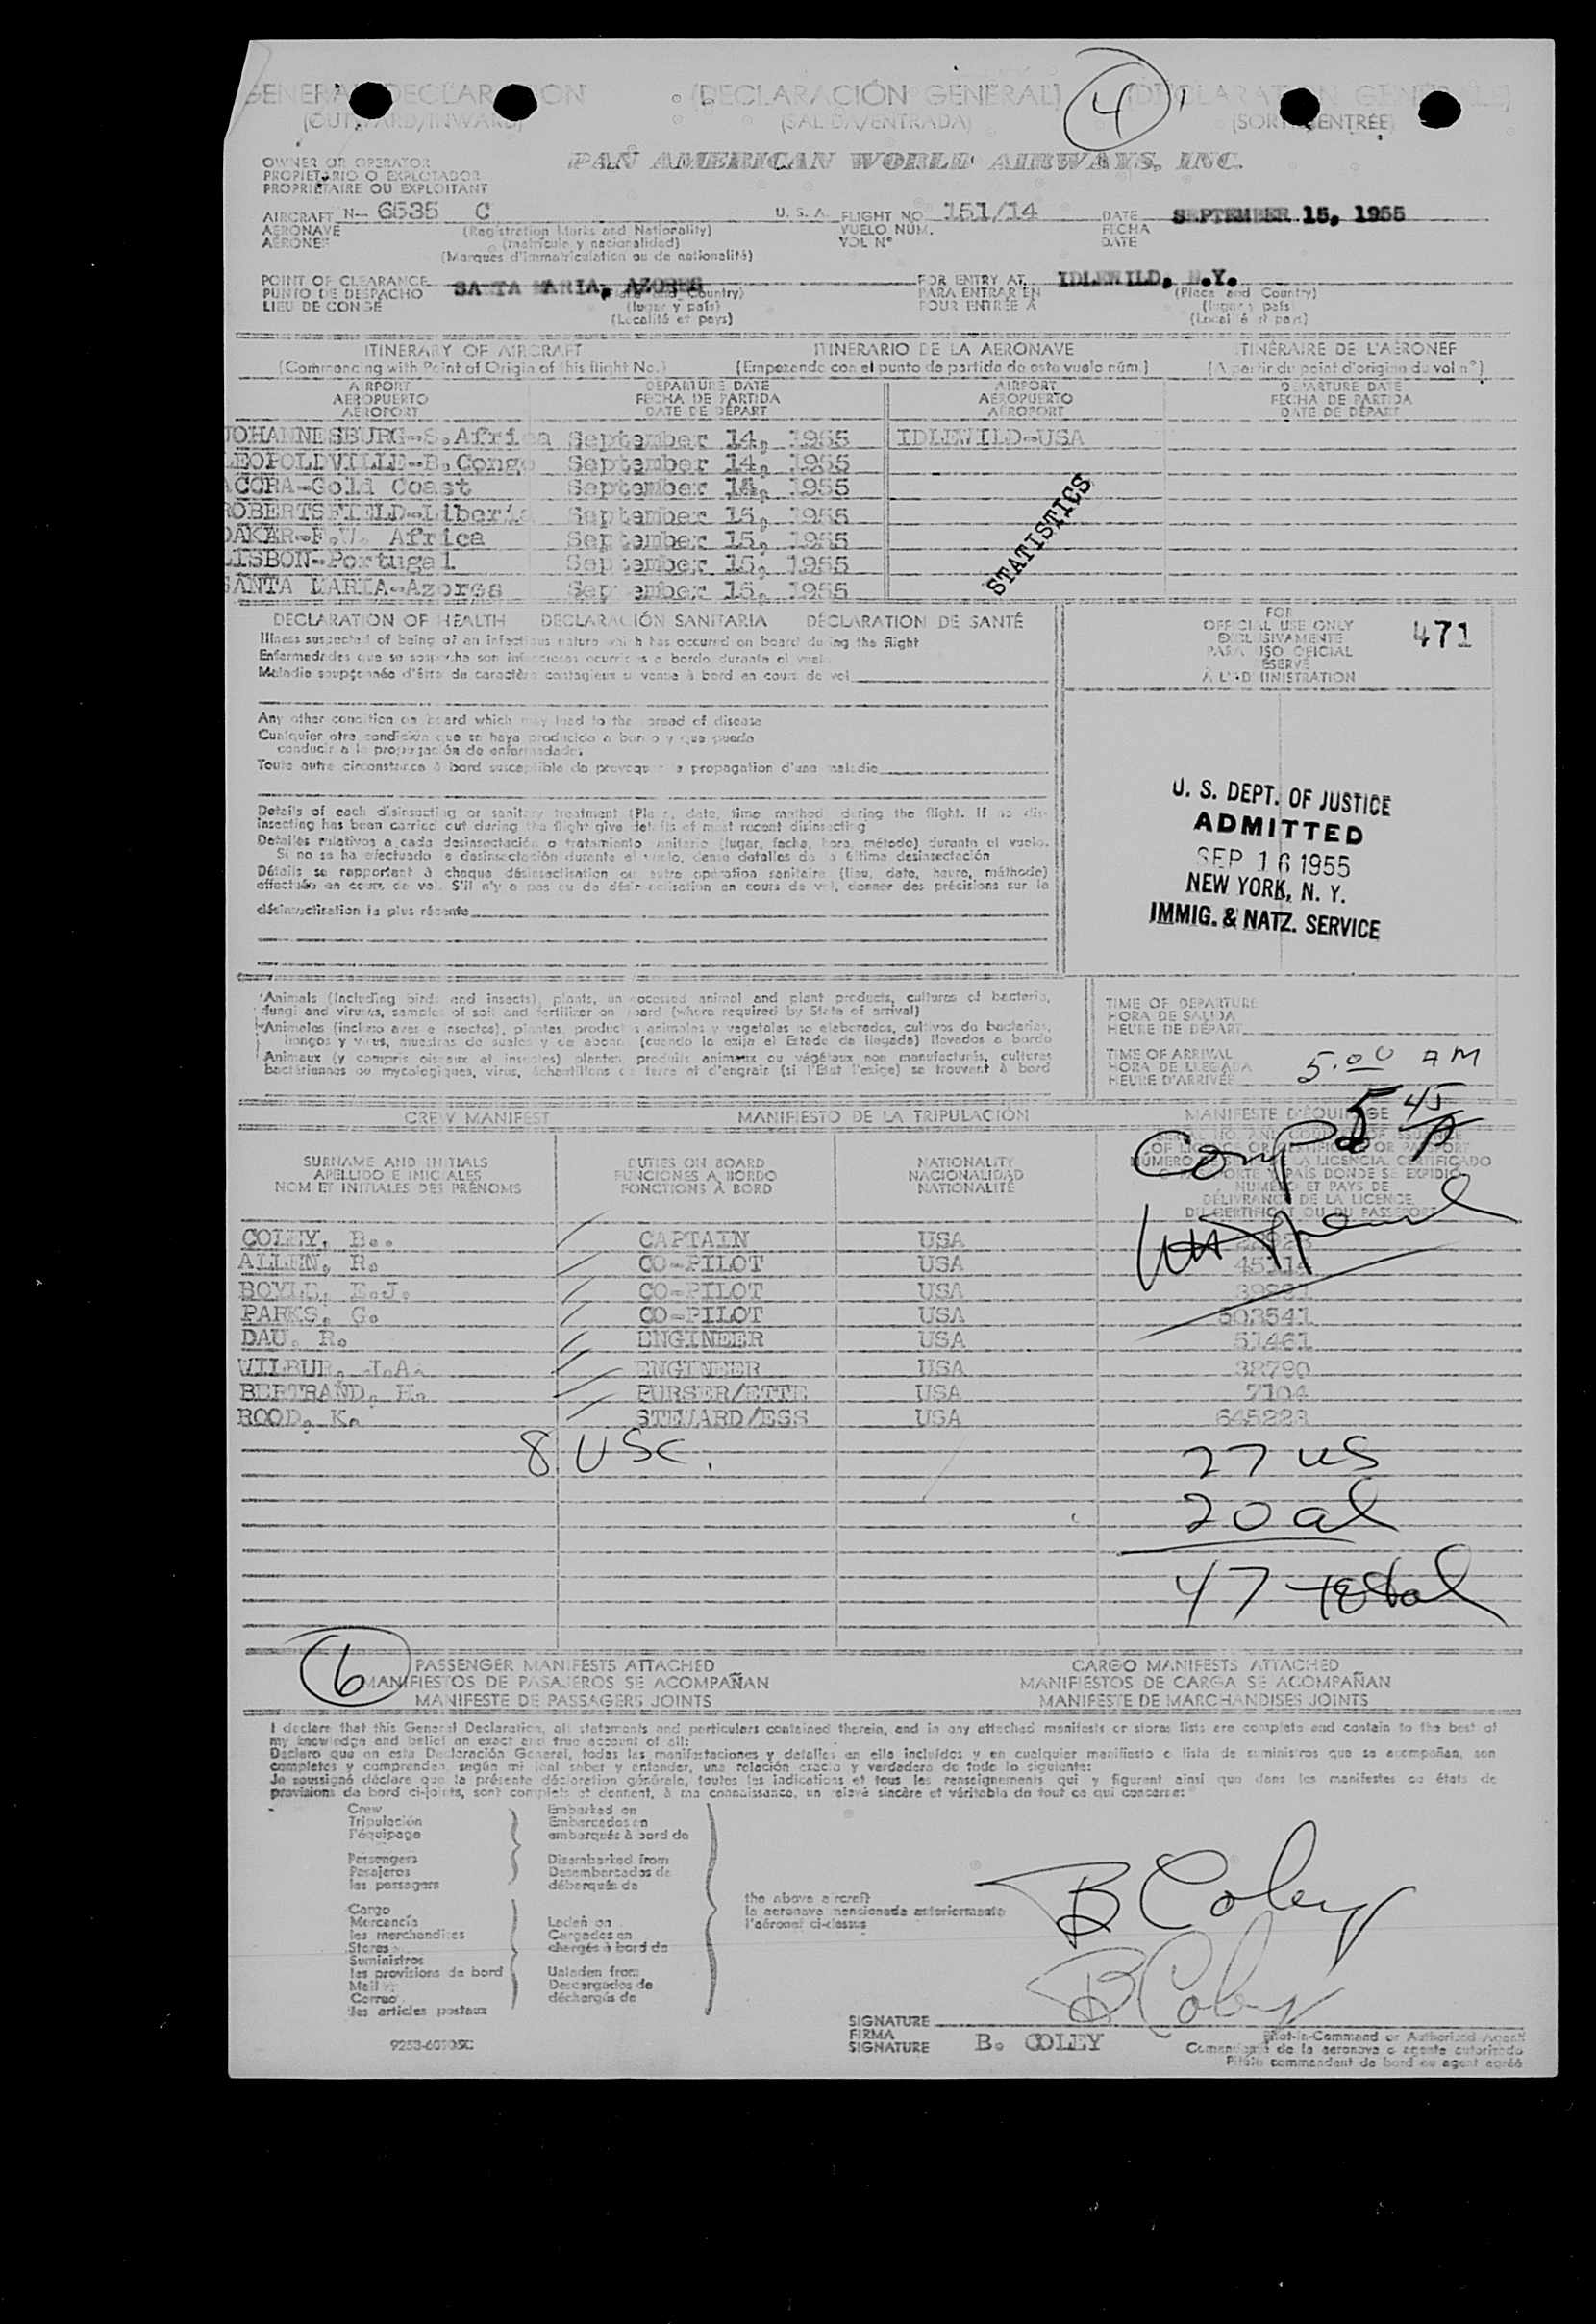 GENERAL DECLARATION (DECLARACIÓN GENERAL) 4 (DÉCLARATION GÉNÉRALE)
(OUTWARD/INWARD) (SALIDA/ENTRADA) (SORTIE/ENTRÉE)
OWNER OR OPERATOR PAN AMERICAN WORLD AIRWAYS, INC.
PROPIETARIO O EXPLOTADOR
PROPRIÉTAIRE OU EXPLOITANT
AIRCRAFT N- 6535 C U. S. A. FLIGHT NO. 151/14 DATE SEPTEMBER 15, 1955
AERONAVE (Registration Marks and Nationality) VUELO NÚM. FECHA
AÉRONEF (matrícula y nacionalidad) VOL Nº DATE
(Marques d'immatriculation ou de nationalité)
POINT OF CLEARANCE SANTA MARIA, AZORES FOR ENTRY AT IDLEWILD, N.Y.
PUNTO DE DESPACHO (Place and Country) PARA ENTRAR EN (Place and Country)
LIEU DE CONGÉ (lugar y país) POUR ENTRÉE À (lugar y país)
(Localité et pays) (Localité et pays)
ITINERARY OF AIRCRAFT ITINERARIO DE LA AERONAVE ITINÉRAIRE DE L'AÉRONEF
(Commencing with Point of Origin of this flight No.) (Empezando con el punto de partida de este vuelo núm.) (A partir du point d'origine du vol nº)
AIRPORT DEPARTURE DATE AIRPORT DEPARTURE DATE
AEROPUERTO FECHA DE PARTIDA AEROPUERTO FECHA DE PARTIDA
AÉROPORT DATE DE DÉPART AÉROPORT DATE DE DÉPART
JOHANNESBURG-S.Africa September 14, 1955 IDLEWILD-USA
LEOPOLDVILLE-B.Congo September 14, 1955
ACCRA-Gold Coast September 14, 1955
ROBERTSFIELD-Liberia September 15, 1955
DAKAR-F.W. Africa September 15, 1955
LISBON-Portugal September 15, 1955
SANTA MARIA-Azores September 15, 1955
STATISTICS
DECLARATION OF HEALTH DECLARACIÓN SANITARIA DÉCLARATION DE SANTÉ
Illness suspected of being of an infectious nature which has occurred on board during the flight
Enfermedades que se sospecha son infecciosas ocurridas a bordo durante el vuelo
Maladie soupçonnée d'être de caractère contagieux survenue à bord en cours de vol
Any other condition on board which may lead to the spread of disease
Cualquier otra condición que se haya producido a bordo y que pueda
conducir a la propagación de enfermedades
Toute autre circonstance à bord susceptible de provoquer la propagation d'une maladie
Details of each disinsecting or sanitary treatment (Place, date, time method) during the flight. If no dis-
insecting has been carried out during the flight give details of most recent disinsecting
Detalles relativos a cada desinsectación o tratamiento sanitario (lugar, fecha, hora, método) durante el vuelo.
Si no se ha efectuado la desinsectación durante el vuelo, dense detalles de la última desinsectación
Détails se rapportant à chaque désinsectisation ou autre opération sanitaire (lieu, date, heure, méthode)
effectuée en cours de vol. S'il n'y a pas eu de désinsectisation en cours de vol, donner des précisions sur la
désinsectisation la plus récente
FOR
OFFICIAL USE ONLY
EXCLUSIVAMENTE
PARA USO OFICIAL
RÉSERVÉ
À L'ADMINISTRATION
471
U. S. DEPT. OF JUSTICE
ADMITTED
SEP 16 1955
NEW YORK, N. Y.
IMMIG. & NATZ. SERVICE
Animals (including birds and insects), plants, unprocessed animal and plant products, cultures of bacteria,
fungi and viruses, samples of soil and fertilizer on board (where required by State of arrival)
Animales (incluso aves e insectos), plantas, productos animales y vegetales no elaborados, cultivos de bacterias,
hongos y virus, muestras de suelos y de abono (cuando lo exija el Estado de llegada) llevados a bordo
Animaux (y compris oiseaux et insectes) plantes, produits animaux ou végétaux non manufacturés, cultures
bactériennes ou mycologiques, virus, échantillons de terre et d'engrais (si l'État l'exige) se trouvant à bord
TIME OF DEPARTURE
HORA DE SALIDA
HEURE DE DÉPART
TIME OF ARRIVAL
HORA DE LLEGADA 5.00 AM
HEURE D'ARRIVÉE
5 45
CREW MANIFEST MANIFIESTO DE LA TRIPULACIÓN MANIFESTE D'ÉQUIPAGE
SURNAME AND INITIALS DUTIES ON BOARD NATIONALITY
APELLIDO E INICIALES FUNCIONES A BORDO NACIONALIDAD
NOM ET INITIALES DES PRÉNOMS FONCTIONS À BORD NATIONALITÉ
NUMÉRO ET PAYS DE
DÉLIVRANCE DE LA LICENCE
DU CERTIFICAT OU DU PASSEPORT
COLEY, B.. CAPTAIN USA
ALLEN, R. CO-PILOT USA
BOYLE, E.J. CO-PILOT USA
PARKS, G. CO-PILOT USA 503541
DAU, R. ENGINEER USA 51461
WILBUR, J.A. ENGINEER USA 38790
BERTRAND, H. PURSER/ETTE USA 7104
ROOD, K. STEWARD/ESS USA 645223
8 USC. 27 US
20 al
47 total
6 PASSENGER MANIFESTS ATTACHED CARGO MANIFESTS ATTACHED
MANIFIESTOS DE PASAJEROS SE ACOMPAÑAN MANIFIESTOS DE CARGA SE ACOMPAÑAN
MANIFESTE DE PASSAGERS JOINTS MANIFESTE DE MARCHANDISES JOINTS
I declare that this General Declaration, all statements and particulars contained therein, and in any attached manifests or stores lists are complete and contain to the best of
my knowledge and belief an exact and true account of all:
Declaro que en esta Declaración General, todas las manifestaciones y detalles en ella incluídos y en cualquier manifiesto o lista de suministros que se acompañan, son
completos y comprenden, según mi leal saber y entender, una relación exacta y verdadera de todo lo siguiente:
Je soussigné déclare que la présente déclaration générale, toutes les indications et tous les renseignements qui y figurent ainsi que dans les manifestes ou états de
provisions de bord ci-joints, sont complets et donnent, à ma connaissance, un relevé sincère et véritable de tout ce qui concerne:
Crew Embarked on
Tripulación Embarcados en
l'équipage embarqués à bord de
Passengers Disembarked from
Pasajeros Desembarcados de
les passagers débarqués de
the above aircraft
la aeronave mencionada anteriormente
l'aéronef ci-dessus
Cargo
Mercancía Laden on
les marchandises Cargados en
Stores chargés à bord de
Suministros
les provisions de bord Unladen from
Mail Descargados de
Correo déchargés de
les articles postaux
B Coley
B Coley
SIGNATURE
FIRMA
SIGNATURE B. COLEY
Pilot-in-Command or Authorized Agent
Comandante de la aeronave o agente autorizado
Pilote commandant de bord ou agent agréé